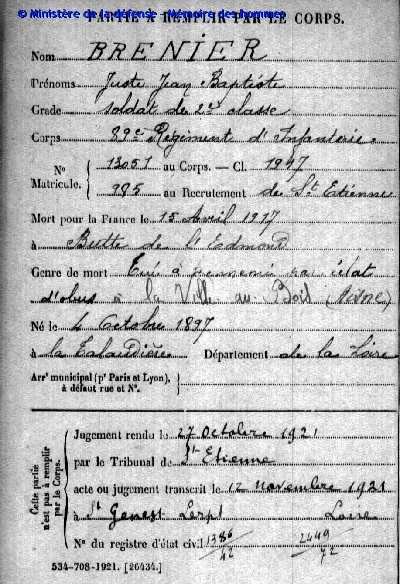 © Ministère de la défense - Mémoire des hommes
PARTIE À REMPLIR PAR LE CORPS.
Nom BRENIER
Prénoms Juste Jean Baptiste
Grade soldat de 2e classe
Corps 89e Régiment d'Infanterie.
N° Matricule. 13051 au Corps. — Cl. 1917
985 au Recrutement de St Etienne
Mort pour la France le 15 Avril 1917
à Butte de l'Edmond
Genre de mort Tué à l'ennemi par éclat
d'obus à la Ville au Bois (Aisne)
Né le 4 Octobre 1897
à la Talaudière Département de la Loire
Arr¹ municipal (pr Paris et Lyon),
à défaut rue et N°.
Cette partie n'est pas à remplir par le Corps.
Jugement rendu le 27 Octobre 1921
par le Tribunal de St Etienne
acte ou jugement transcrit le 12 Novembre 1921
à St Genest Lerpt Loire
N° du registre d'état civil 1386/42 2449/72
534-708-1921. [26434.]